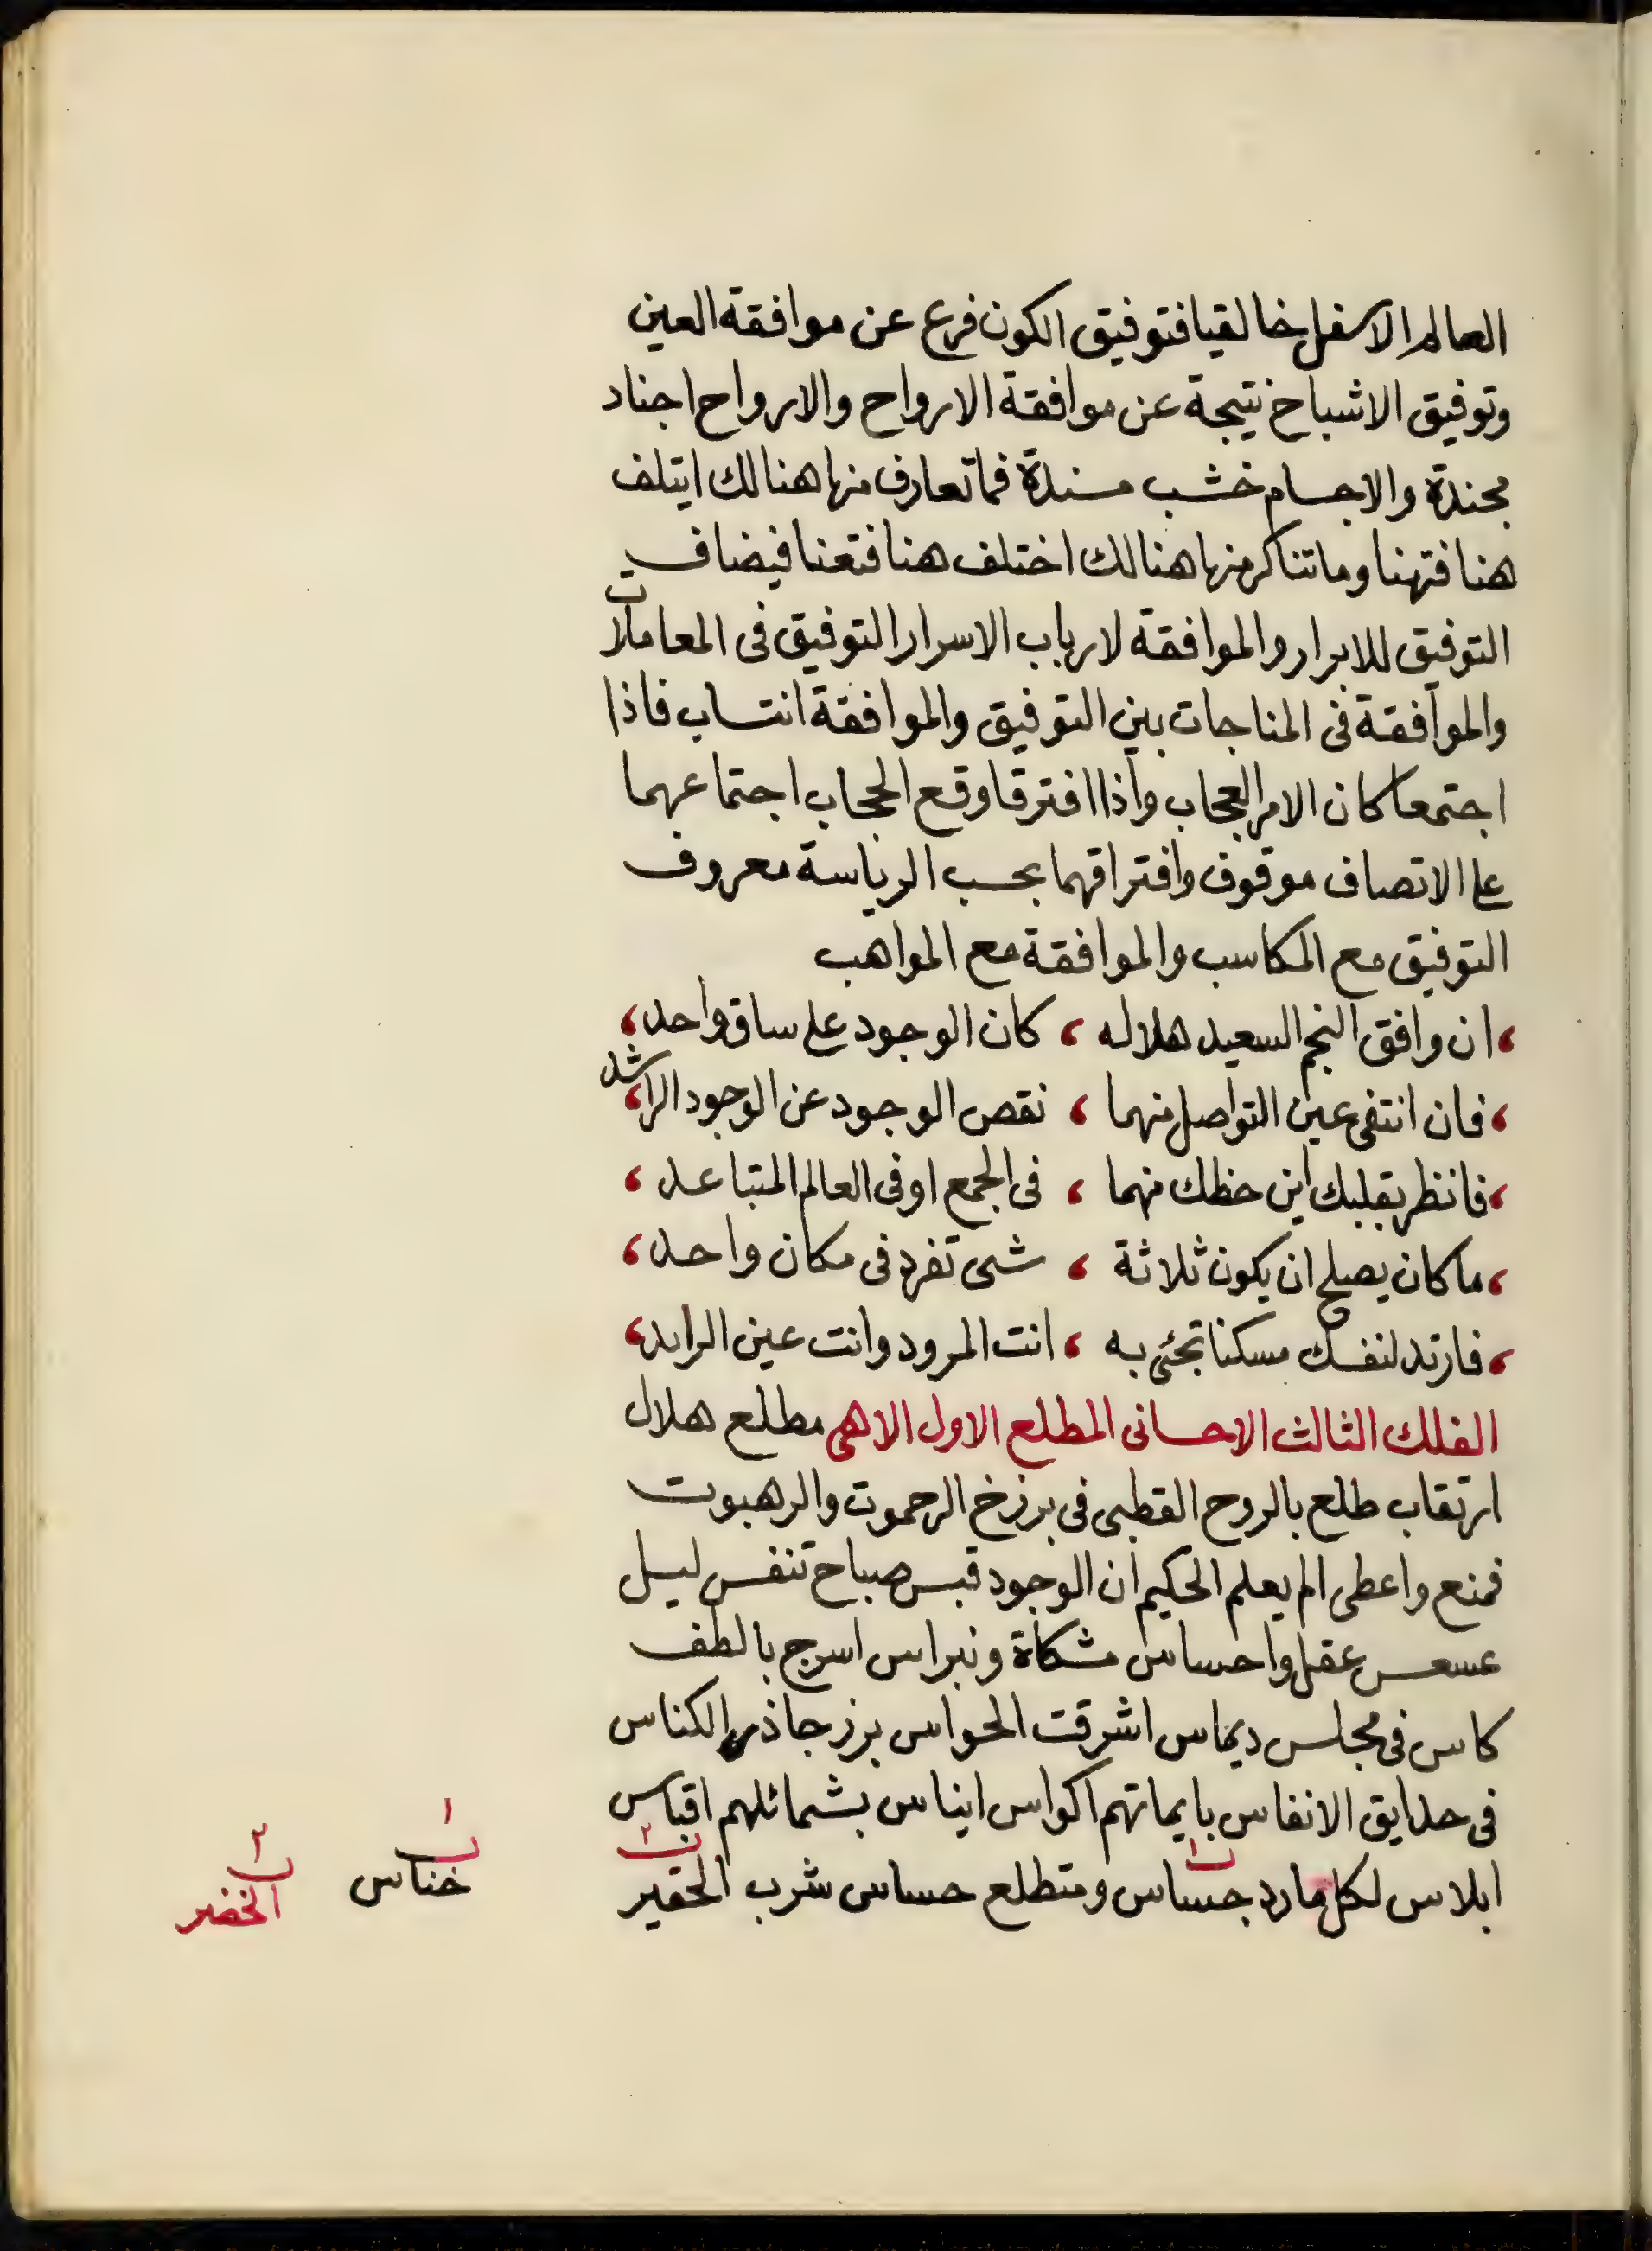 العالم الاسفل خالقيا فتوفيق الكون فرع عن موافقة العين
وتوفيق الاشباخ نتيجة عن موافقة الارواح والارواح اجناد
مجندة والاجسام خشب مسندة فما تعارف منها هنالك ايتلف
هنا فتهنا وما تناكر منها هنالك اختلف هنا فتعنا فيضاف
التوفيق للابرار والموافقة لارباب الاسرار التوفيق فى المعاملات
والموافقة فى المناجات بين التوفيق والموافقة انتساب فاذا
اجتمعا كان الامر العجاب واذا افترقا وقع الحجاب اجتماعهما
على الاتصاف موقوف وافتراقهما بحسب الرياسة معروف
التوفيق مع المكاسب والموافقة مع المواهب
، ان وافق النجم السعيد هلاله ، كان الوجود على ساق واحد ،
، فان انتفى عين التواصل منهما ، نقص الوجود عن الوجود الراشد ،
، فانظر بقلبك اين حظك منهما ، فى الجمع او فى العالم المتباعد ،
، ما كان يصلح ان يكون ثلاثة ، شى تفرد فى مكان واحد ،
، فارتد لنفسك مسكنا تجئ به ، انت المرود وانت عين الرايد ،
الفلك الثالث الاحسانى المطلع الاول الاهى مطلع هلال
ارتقاب طلع بالروح القطبى فى برزخ الرحموت والرهبوت
فمنع واعطى الم يعلم الحكيم ان الوجود قبس صباح تنفس ليل
عسعس عقل واحساس مشكاة ونبراس اسرج بالطف
كاس فى مجلس ديماس اشرقت الحواس برز جاذر الكناس
فى حدايق الانفاس بايماتهم اكواس ايناس بشمائلهم اقباس
ابلاس لكل مارد جساس ومتطلع حساس شرب الحقير
١ خناس
٢ الخضر